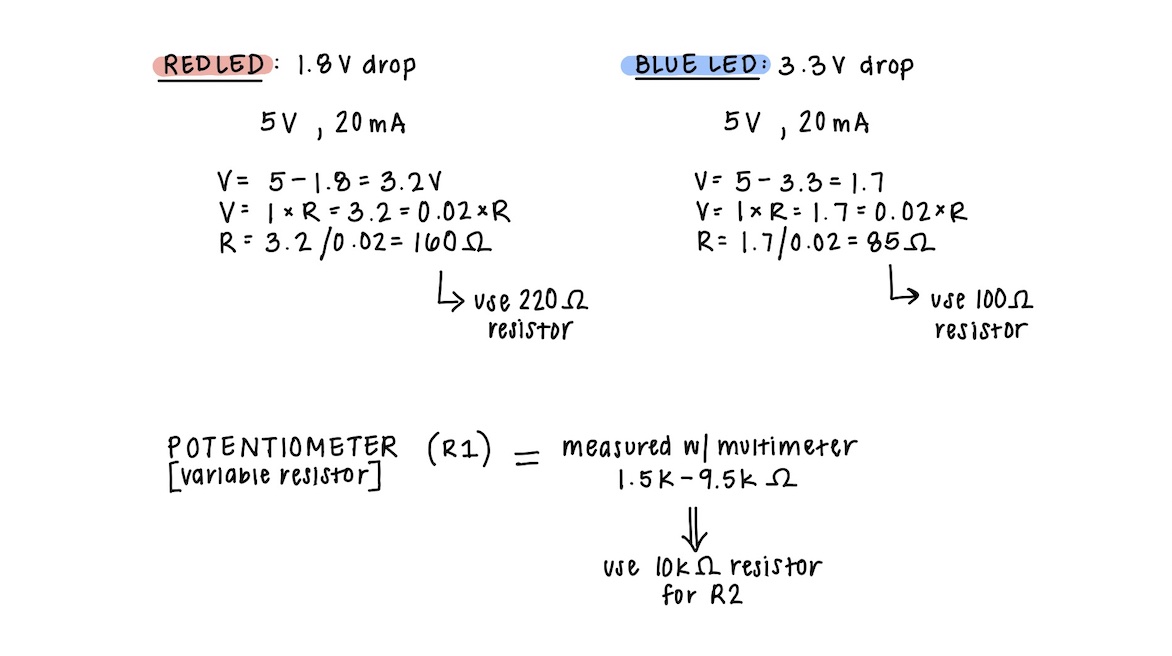 RED LED: 1.8V drop
5V , 20mA
V= 5-1.8=3.2V
V= I×R=3.2=0.02×R
R= 3.2/0.02= 160Ω
use 220Ω
resistor
BLUE LED: 3.3V drop
5V , 20mA
V= 5-3.3=1.7
V= I×R=1.7=0.02×R
R= 1.7/0.02=85Ω
use 100Ω
resistor
POTENTIOMETER (R1) = measured w/ multimeter
[variable resistor] 1.5K-9.5K Ω
use 10KΩ resistor
for R2